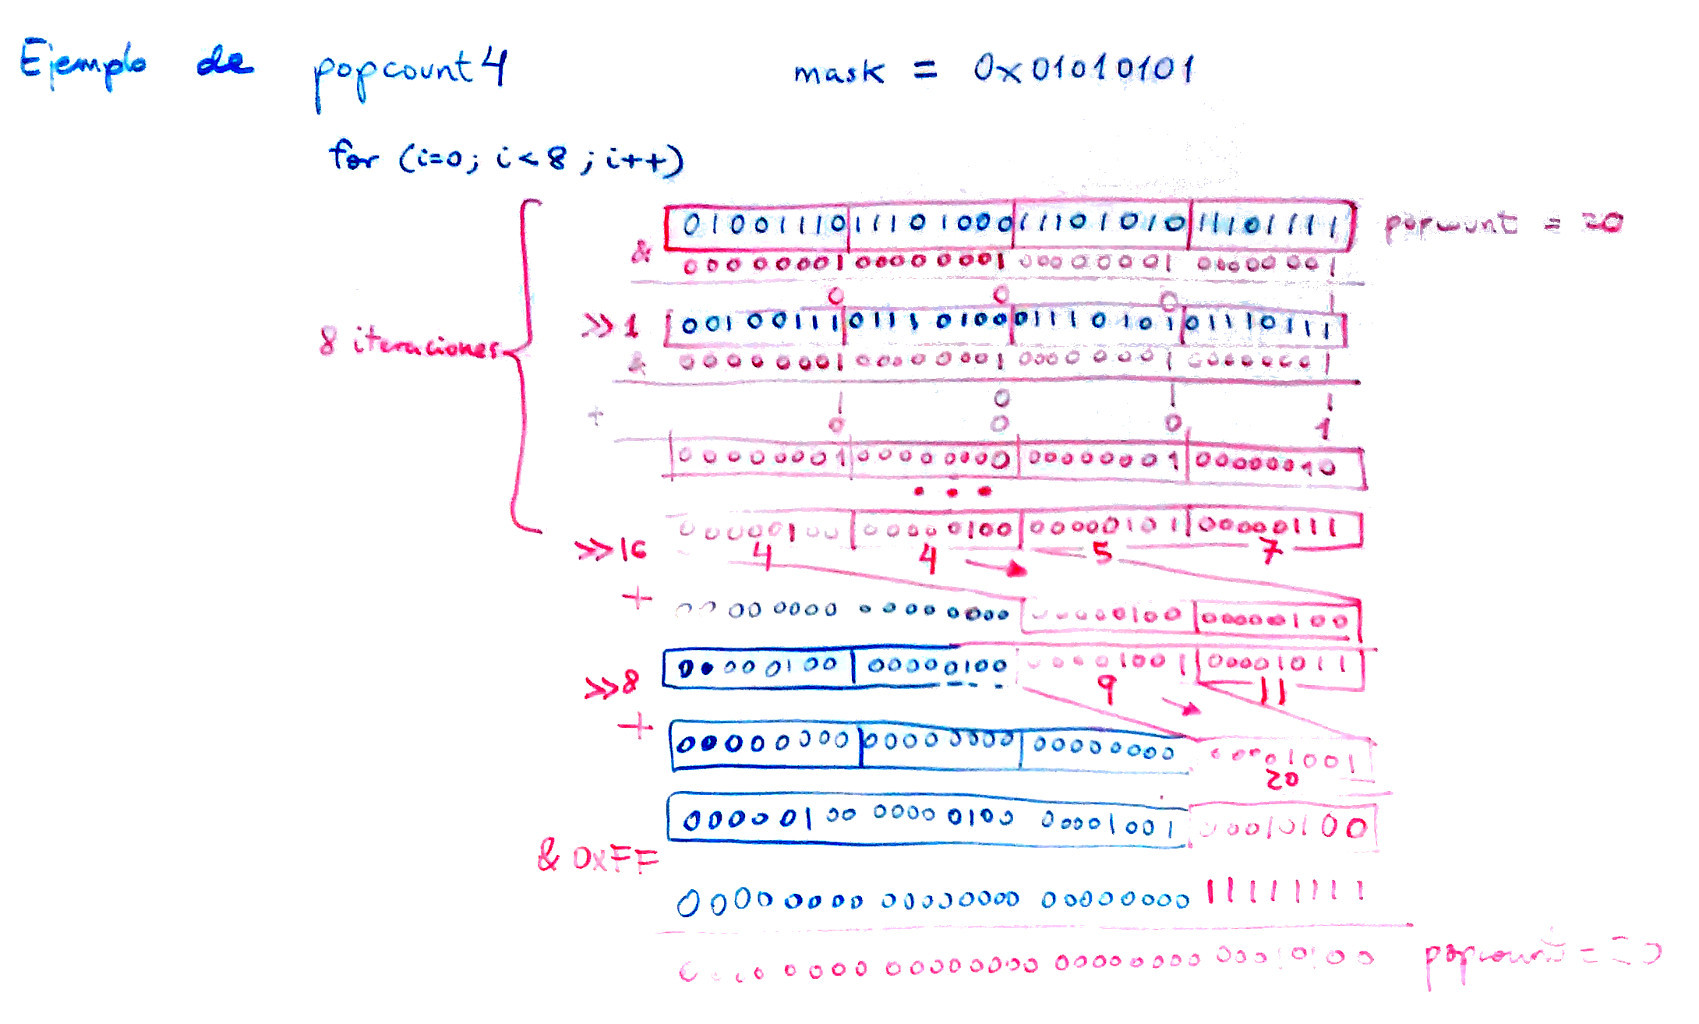 Ejemplo de popcount4 mask = 0x01010101
for (i=0; i<8; i++)
01001110 11101000 11101010 11101111 popcount = 20
& 00000001 00000001 00000001 00000001
0 0 0 1
>>1 00100111 01110100 01110101 01110111
& 00000001 00000001 00000001 00000001
8 iteraciones
1 0 1 1
+ 0 0 0 1
00000001 00000000 00000001 00000010
...
00000100 00000100 00000101 00000111
>>16 4 4 5 7
+ 00000000 00000000 00000100 00000100
00000100 00000100 00001001 00001011
>>8 9 11
+ 00000000 00000000 00000000 00001001
20
00000100 00000100 00001001 00010100
& 0xFF
00000000 00000000 00000000 11111111
00000000 00000000 00000000 00010100 popcount = 20